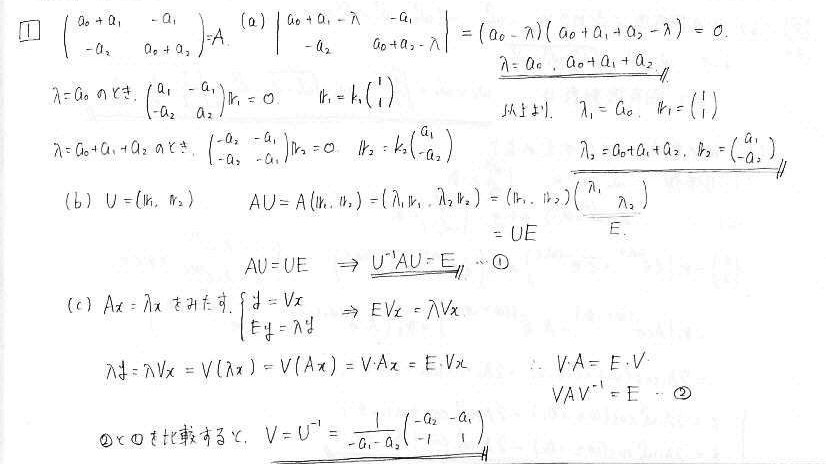 1 (a₀+a₁ -a₁ / -a₂ a₀+a₂) = A. (a) |a₀+a₁-λ -a₁ / -a₂ a₀+a₂-λ| = (a₀-λ)(a₀+a₁+a₂-λ) = 0.
λ = a₀, a₀+a₁+a₂.
λ=a₀ のとき. (a₁ -a₁ / -a₂ a₂)𝕣₁ = 0. 𝕣₁ = k₁(1 / 1) 以上より. λ₁ = a₀. 𝕣₁ = (1 / 1)
λ=a₀+a₁+a₂ のとき. (-a₂ -a₁ / -a₂ -a₁)𝕣₂ = 0 𝕣₂ = k₂(a₁ / -a₂) λ₂ = a₀+a₁+a₂. 𝕣₂ = (a₁ / -a₂)
(b) U = (𝕣₁, 𝕣₂) AU = A(𝕣₁, 𝕣₂) = (λ₁𝕣₁, λ₂𝕣₂) = (𝕣₁, 𝕣₂)(λ₁ / λ₂)
= UE E.
AU = UE ⇒ U⁻¹AU = E ...①
(c) Ax = λx をみたす. { y = Vx / Ey = λy ⇒ EVx = λVx.
λy = λVx = V(λx) = V(Ax) = V·Ax = E·Vx ∴ V·A = E·V
VAV⁻¹ = E ...②
②と①を比較すると. V = U⁻¹ = 1/(-a₁-a₂) (-a₂ -a₁ / -1 1)